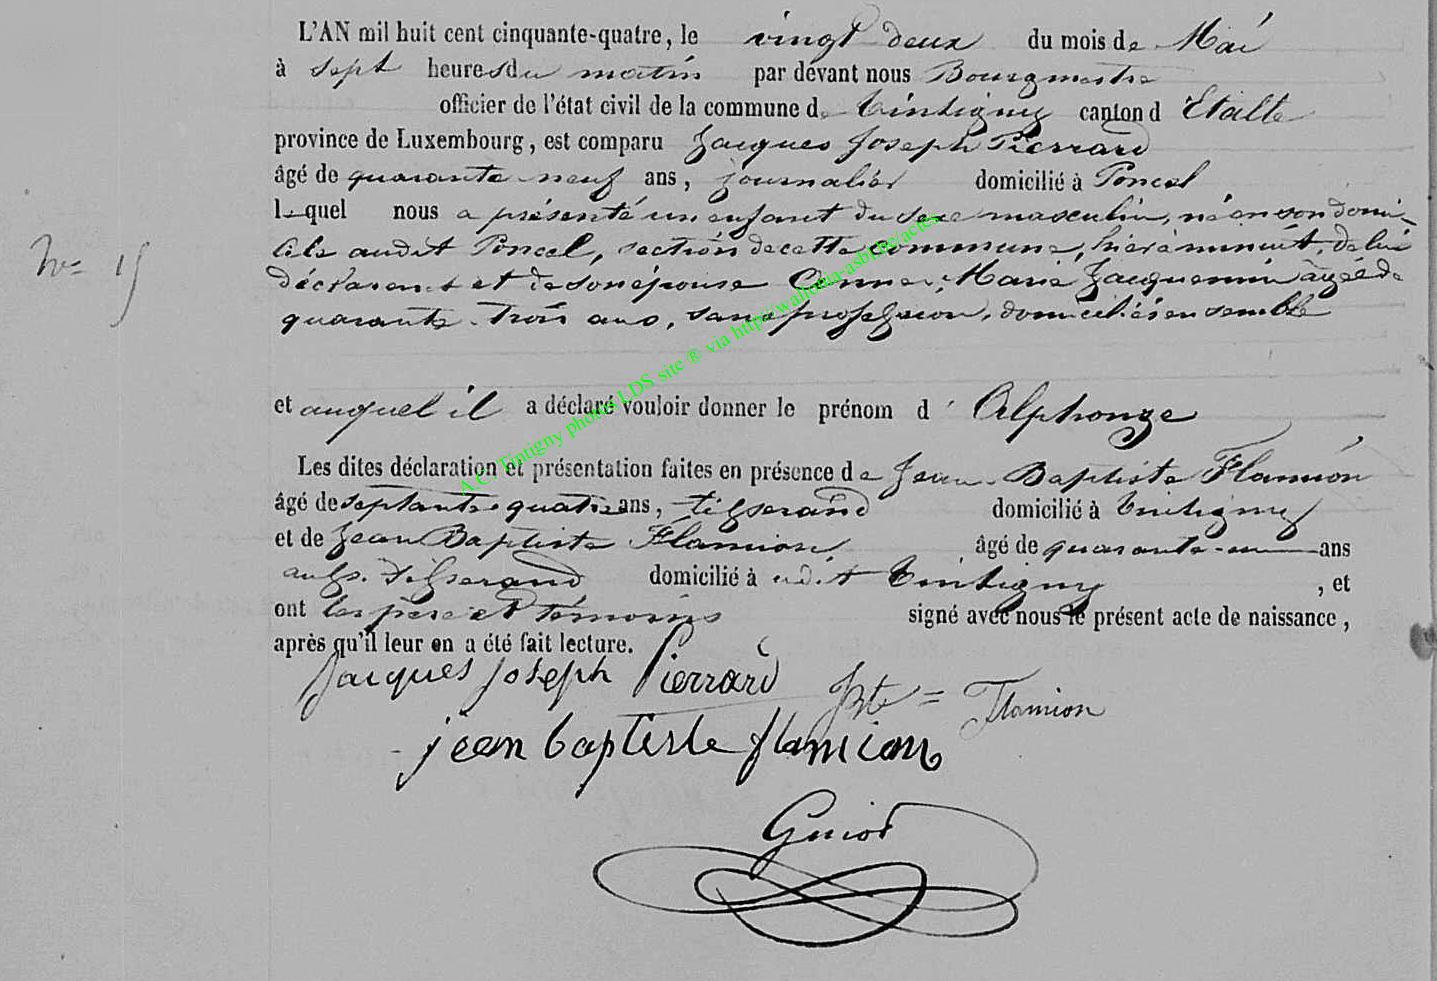 L'AN mil huit cent cinquante-quatre, le vingt deux du mois de Mai
à sept heures du matin par devant nous Bourgmestre
officier de l'état civil de la commune de Tintigny canton d'Etalle
province de Luxembourg, est comparu Jacques Joseph Pierrard
âgé de quarante neuf ans, journalier domicilié à Poncel
lequel nous a présenté un enfant du sexe masculin, né en son domi-
cile audit Poncel, section de cette commune, hier à minuit, de lui
déclarant et de son épouse Anne-Marie Jacquemin âgée de
quarante-trois ans, sans profession, domiciliés ensemble
N° 15
et auquel il a déclaré vouloir donner le prénom d'Alphonze
Les dites déclaration et présentation faites en présence de Jean-Baptiste Flamion
âgé de septante-quatre ans, tisserand domicilié à Tintigny
et de Jean Baptiste Flamion âgé de quarante-un ans
aussi tisserand domicilié à udit Tintigny, et
ont les père et témoins signé avec nous le présent acte de naissance,
après qu'il leur en a été fait lecture.
Jacques Joseph Pierrard
JBte = Flamion
jean baptiste flamion
Guiot
A.C. Tintigny photos LDS site ® via http://wallonia-asbl.be/actes